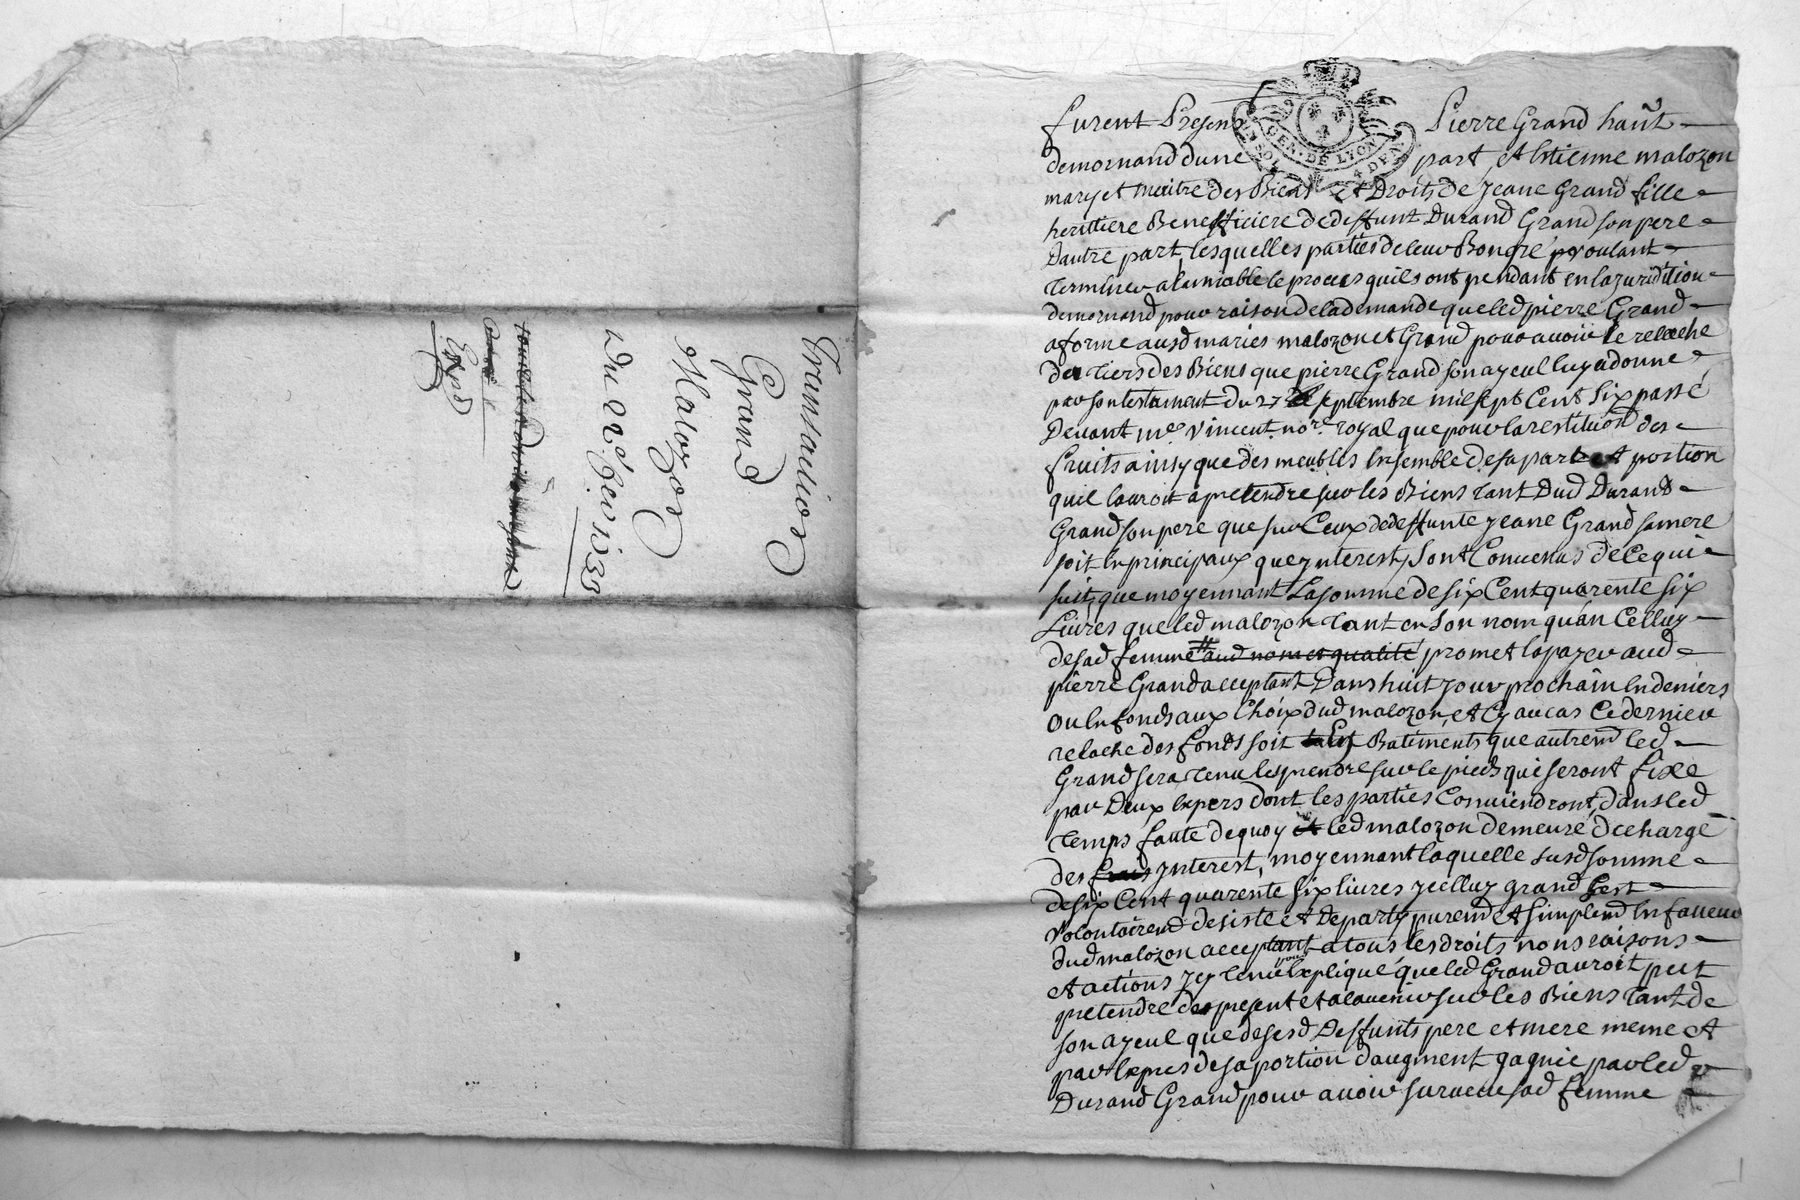 Transaction
Grand
Malozon
Du 22e fev 1735
Expd
GEN. DE LYON
furent Presens Pierre Grand hañt
demornand dune part et Estienne malozon
mary et maitre des Biens et Droits de Jeane Grand fille
heritiere Benefficiere de deffunt Durand Grand son pere
Dautre part, lesquelles parties de leur Bon gré voulant
Terminer a lamiable le proces quils ont pendant en la juridition
demornand pour raison de la demande que led pierre Grand
a forme ausd maries malozon et Grand pour avoir le relache
du tiers des Biens que pierre Grand son ayeul luy a donne
par son testament du 27e septembre mil sept Cent Six passé
Devant me Vincent nore royal que pour la restitution des
fruits ainsy que des meubles Ensemble de sa part et portion
quil auroit a pretendre sur les Biens tant Dud Durand
Grand son pere que sur Ceux de deffunte Jeane Grand sa mere
soit En principaux que Interest, Sont Convenus de Ce qui
suit, que moyennant La somme de six Cent quarente six
Livres que led malozon tant en son nom quán Celluy
de sad femme aud nom et qualité promet la payer aud
pierre Grand acceptant Dans huit Jour prochain En deniers
ou En fonds aux Choix dud malozon, et Cy au cas Ce dernier
relache des fonds soit Batiments que autremd led
Grand sera tenu les prendre sur le pieds qui seront fixe
par Deux Expers dont les parties Conviendront, dans led
temps faute de quoy led malozon demeure dcehargé
des frais Interest, moyennant laquelle susd somme
de six Cent quarente six livres Jcelluy grand Sest
volontairemd desisté et departy puremd et simplemd En faveur
dud malozon acceptant a tous les droits noms raisons
et actions Jcy tenu pour Expliqué que led Grand auroit peut
pretendre des present et a lavenir sur les Biens tant de
son ayeul que de sesd Deffunts pere et mere meme et
par Expres de sa portion daugment gagnie par led
Durand Grand pour avoir survecu sad femme